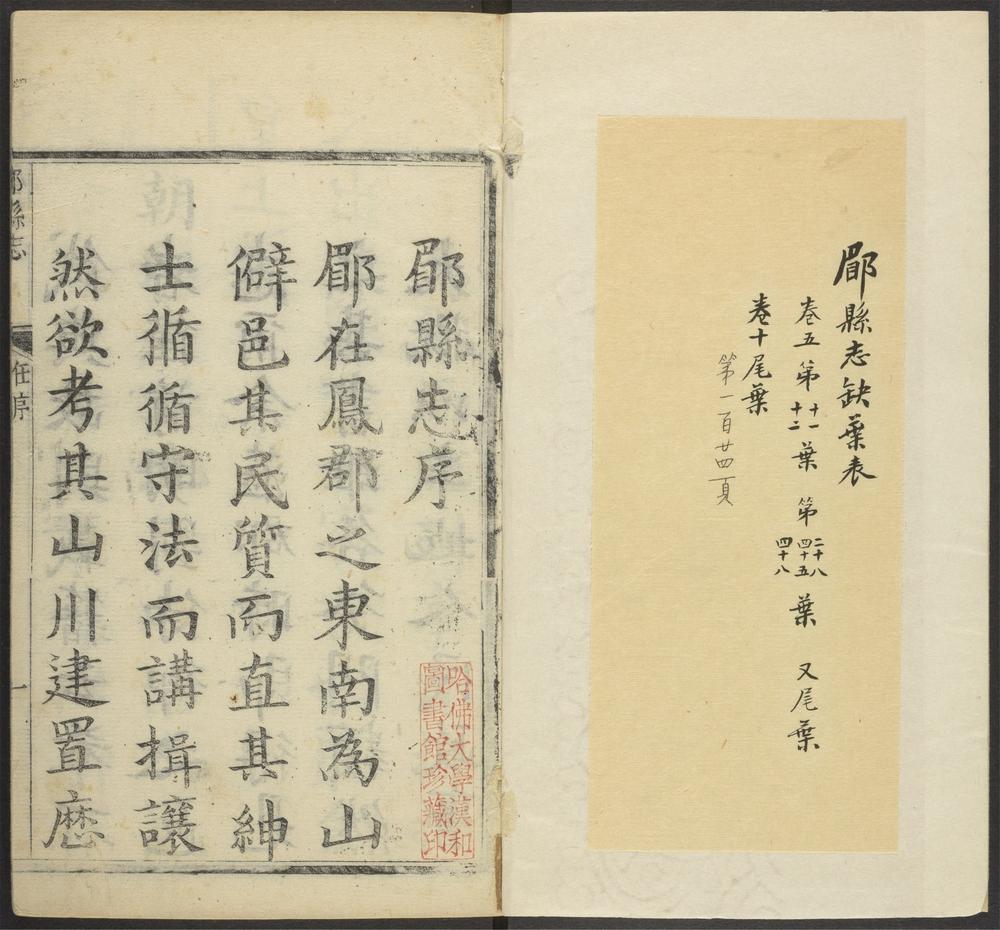 郿縣志缺葉表
卷五 第十一十二葉 第二十八四十五四十八葉 又尾葉
卷十尾葉
第一百廿四頁
郿縣志序
郿在鳳郡之東南為山
僻邑其民質而直其紳
士循循守法而講揖讓
然欲考其山川建置歷
哈佛大學漢和
圖書館珍藏印
郿縣志
任序
一